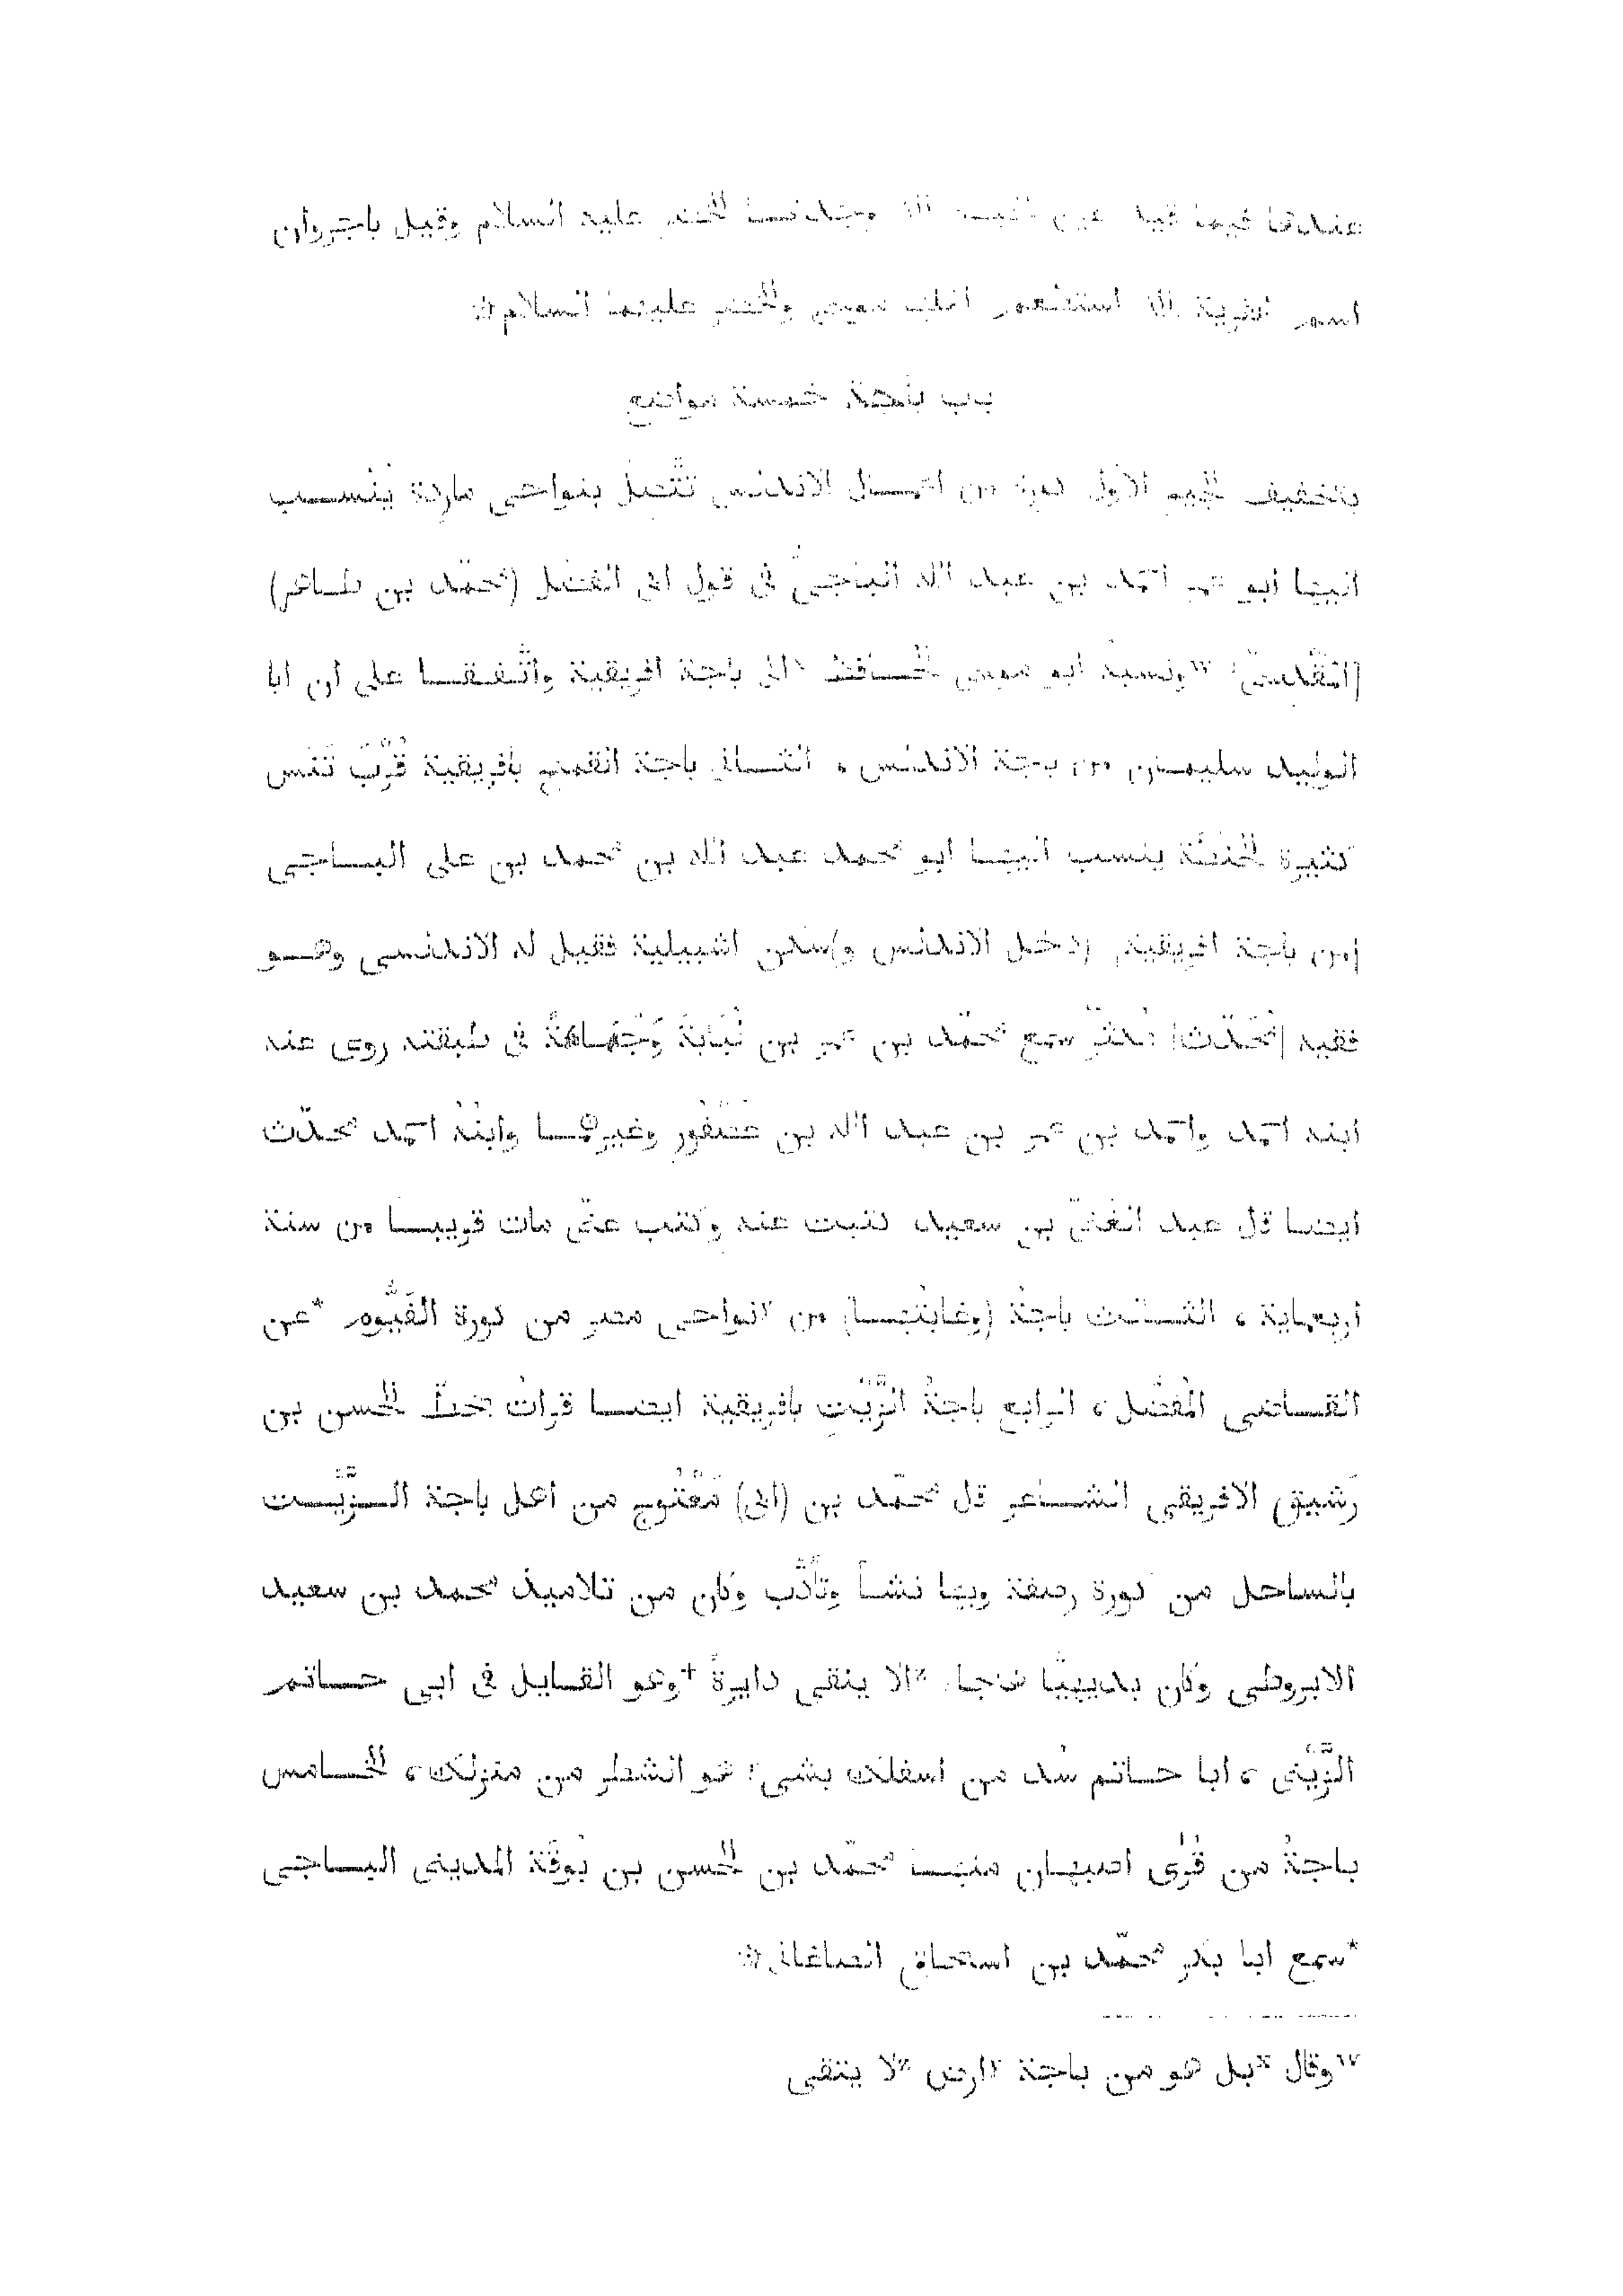 عندها فيما قيل عين الحياة الله وجدها الخضر عليه السلام وقيل باجروان
اسم القرية الله استطعم اهلها موسى والخضر عليهما السلام ۞
باب باجة خمسة مواضع
بتخفيف الجيم الاول موضع من اعمال الاندلس تتّصل بنواحى ماردة ينسب
اليها ابو عمر احمد بن عبد الله الباجىّ فى قول ابى الفضل (محمّد بن طاهر)
[المقدسىّ] ونسبه ابو موسى الحافظ الى باجة افريقية واتّفقا على ان ابا
الوليد سليمان من باجة الاندلس ه الثانى باجة القمح بافريقية قُرْبَ تنس
كثيرة الحنطة ينسب اليها ابو محمد عبد الله بن محمد بن على الباجى
[من باجة افريقية] دخل الاندلس وسكن اشبيلية فقيل له الاندلسى وهو
فقيه [مُحَدّث] مكثر سمع محمّد بن عمر بن لُبَابَةَ وجماعةً فى طبقته روى عنه
ابنه احمد واحمد بن عمر بن عبد الله بن عصفور وغيرهما وابنُهُ احمد محدّث
ايضا قال عبد الغنىّ بن سعيد كتبت عنه وكتب عنّى مات قريبا من سنة
اربعماية ه الثالث باجة من نواحى مصر من كورة الفَيُّوم *عن
القاضى المُفضّل ه الرابع باجةُ الزَّيْت بافريقية ايضا قراتُ بخطّ الحسن بن
رَشيق الافريقى الشاعر قال محمّد بن (ابى) مَعْتُوج من اهل باجة الزَّيْت
بالساحل من كورة رصفة وبها نشأ وتأدّب وكان من تلاميذ محمد بن سعيد
الابروطى وكان بديهيًّا هجاء *لا يتقى دايرةً +وهو القايل فى ابى حاتم
الزَّبْنى ه ابا حاتم سُدّ من اسفلك بشىء هو الشطر من منزلك ه الخامس
باجةُ من قُرى اصبهان منها محمّد بن الحسن بن بُوقَة المدينى الباجى
*سمع ابا بكر محمّد بن اسحاق الصاغانى ۞
وقال *بل هو من باجة ارض *لا يتقى